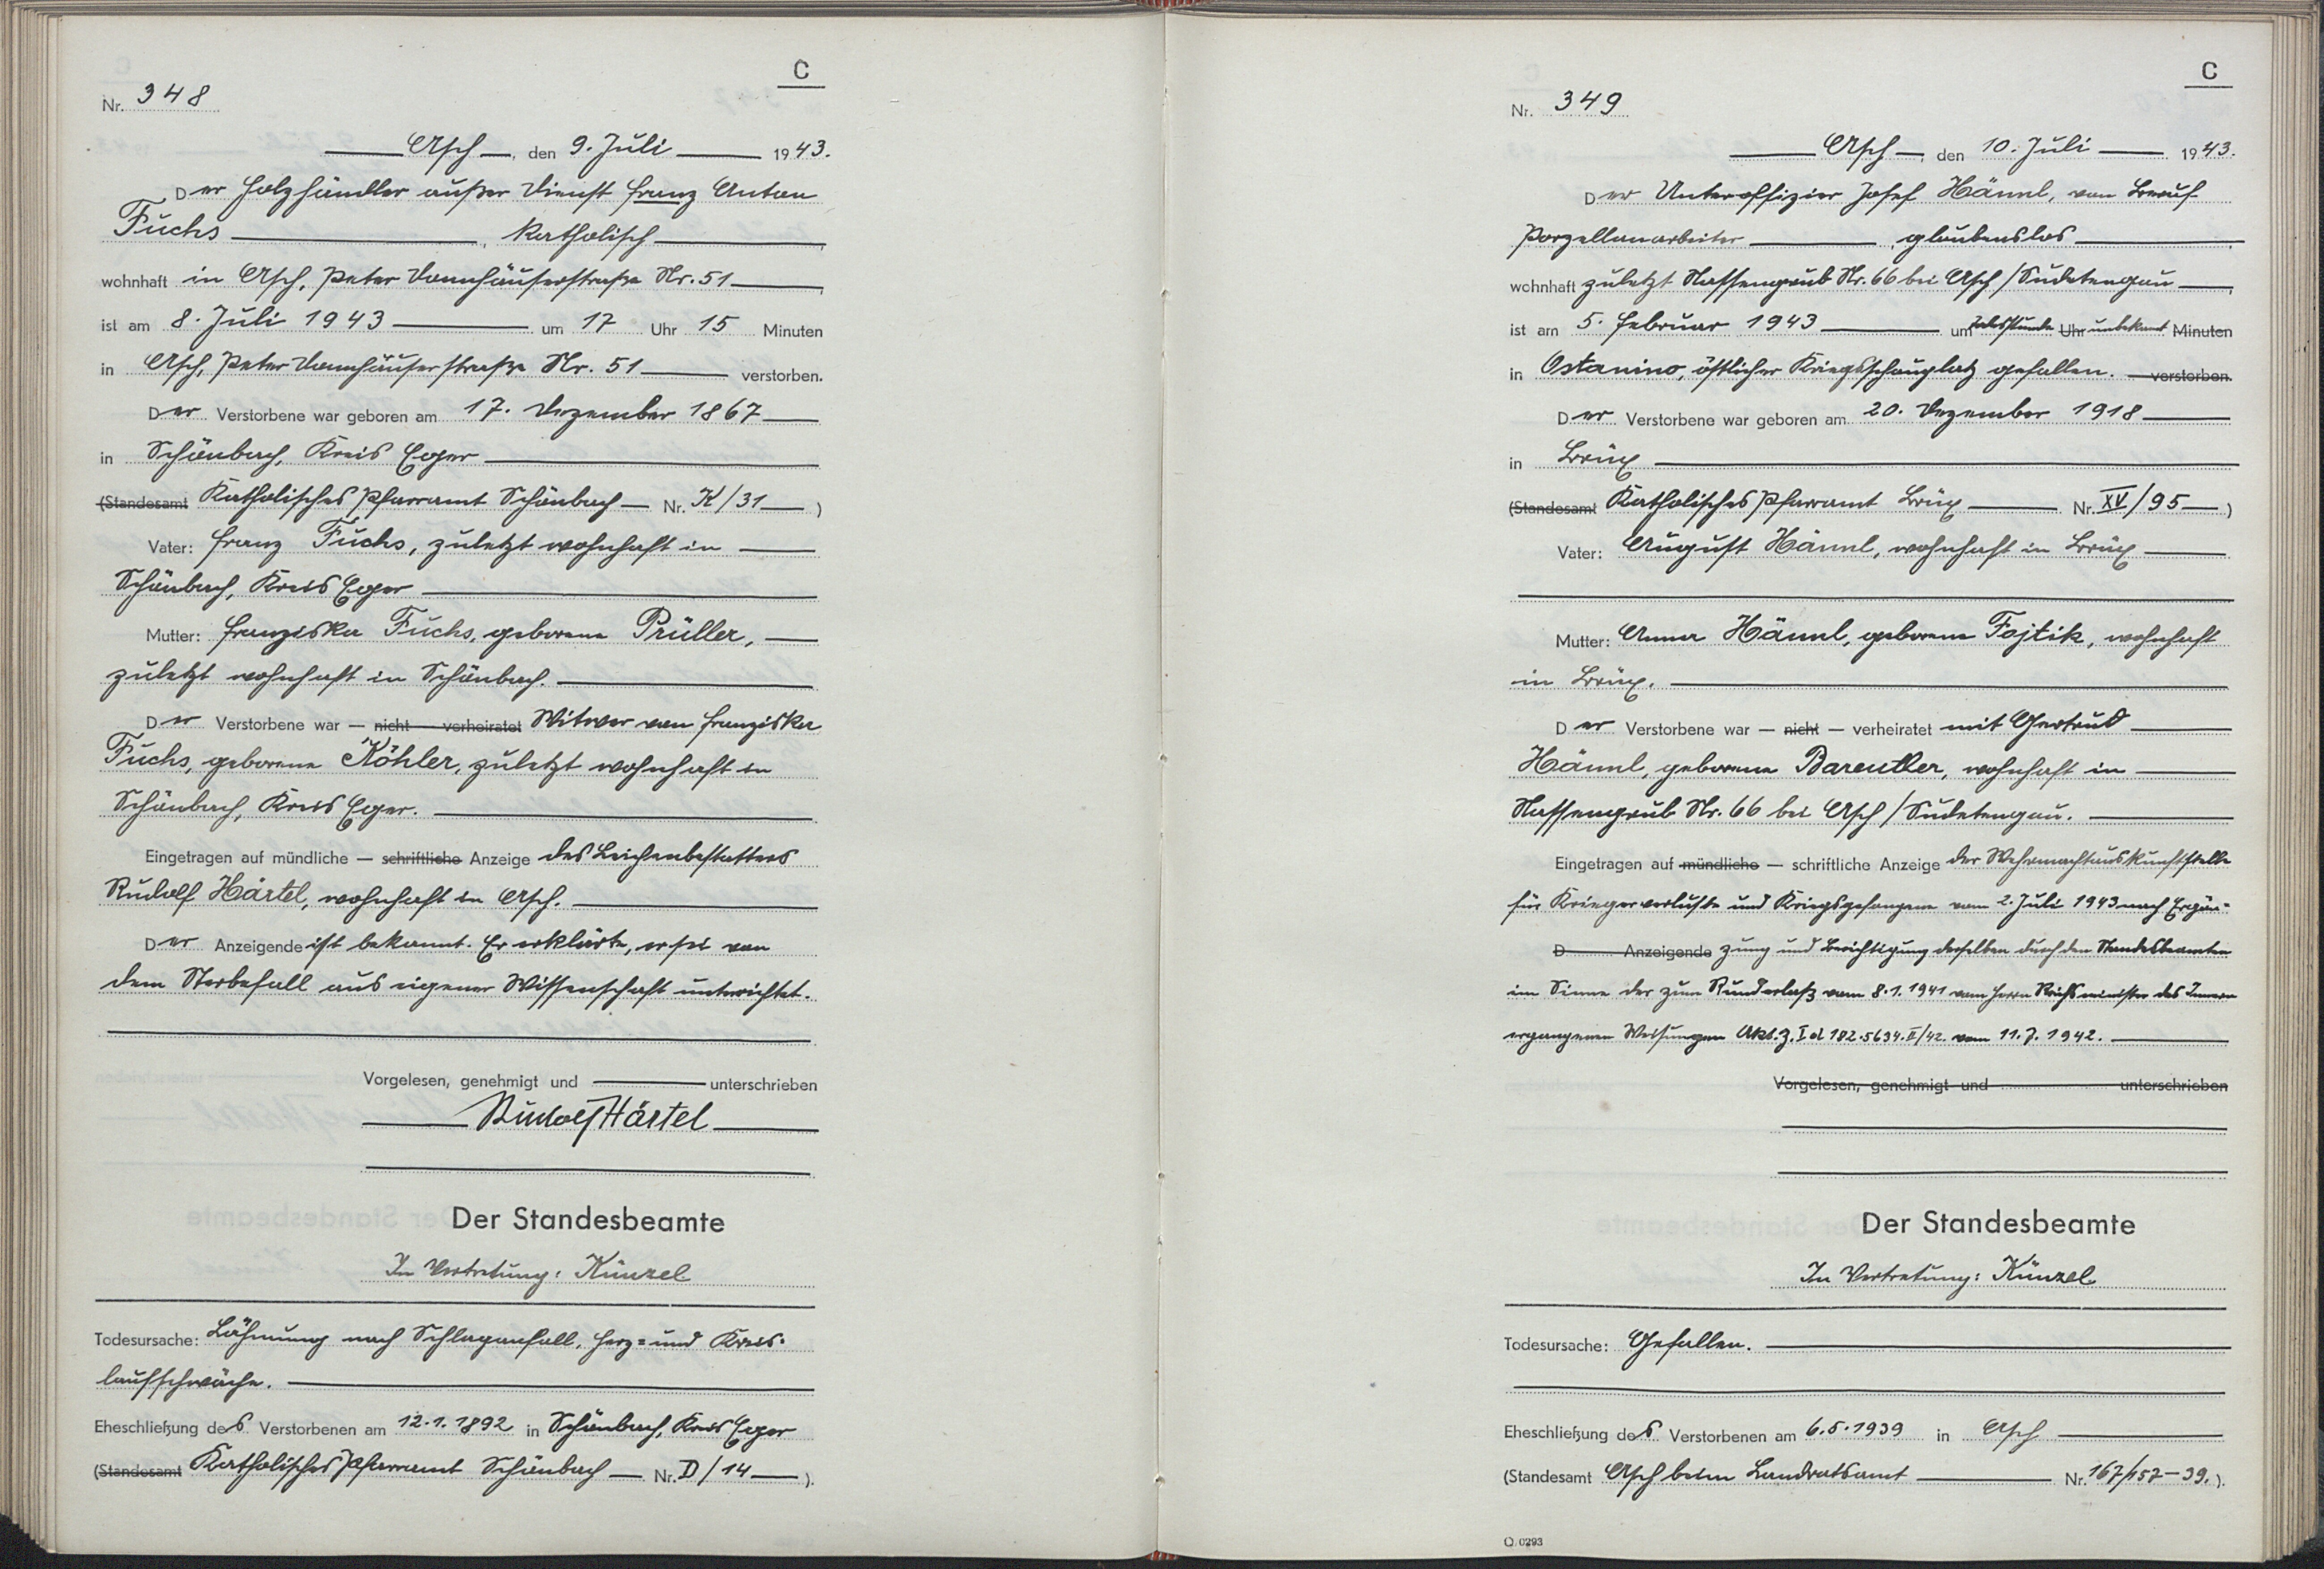 C
Nr. 348
Asch, den 9. Juli 1943.
Der Holzhändler außer Dienst Franz Anton
Fuchs, katholisch,
wohnhaft in Asch, Peter Donnhäuserstraße Nr. 51,
ist am 8. Juli 1943 um 17 Uhr 15 Minuten
in Asch, Peter Donnhäuserstraße Nr. 51 verstorben.
Der Verstorbene war geboren am 17. Dezember 1867
in Schönbach, Kreis Eger
(Standesamt Katholisches Pfarramt Schönbach Nr. K/31)
Vater: Franz Fuchs, zuletzt wohnhaft in
Schönbach, Kreis Eger
Mutter: Franziska Fuchs, geborene Prüller,
zuletzt wohnhaft in Schönbach.
Der Verstorbene war — nicht — verheiratet Witwer von Franziska
Fuchs, geborene Köhler, zuletzt wohnhaft in
Schönbach, Kreis Eger.
Eingetragen auf mündliche — schriftliche Anzeige des Leichenbestatters
Rudolf Härtel, wohnhaft in Asch.
Der Anzeigende ist bekannt. Er erklärte, er sei von
dem Sterbefall aus eigener Wissenschaft unterrichtet.
Vorgelesen, genehmigt und unterschrieben
Rudolf Härtel
Der Standesbeamte
In Vertretung: Künzel
Todesursache: Lähmung nach Schlaganfall, Herz= und Kreis-
laufschwäche.
Eheschließung des Verstorbenen am 12.1.1892 in Schönbach, Kreis Eger
(Standesamt Katholisches Pfarramt Schönbach Nr. D/14).
C
Nr. 349
Asch, den 10. Juli 1943.
Der Unteroffizier Josef Hännl, von Beruf
Porzellanarbeiter, glaubenslos,
wohnhaft zuletzt Nassengrub Nr. 66 bei Asch/Sudetengau,
ist am 5. Februar 1943 um Todesstunde Uhr unbekannt Minuten
in Ostanino, östlicher Kriegsschauplatz gefallen. verstorben.
Der Verstorbene war geboren am 20. Dezember 1918
in Brüx
(Standesamt Katholisches Pfarramt Brüx Nr. XV/95)
Vater: August Hännl, wohnhaft in Brüx
Mutter: Anna Hännl, geborene Fojtik, wohnhaft
in Brüx.
Der Verstorbene war — nicht — verheiratet mit Gertrud
Hännl, geborene Bareuther, wohnhaft in
Nassengrub Nr. 66 bei Asch/Sudetengau.
Eingetragen auf mündliche — schriftliche Anzeige der Wehrmachtauskunftstelle
für Kriegerverluste und Kriegsgefangene vom 2. Juli 1943 nach Ergän=
D Anzeigende zung und Berichtigung derselben durch den Standesbeamten
im Sinne der zum Runderlaß vom 8.1.1941 vom Herrn Reichsminister des Innern
ergangenen Weisungen Akt.Z. I d 182.5634.II/42. vom 11.7.1942.
Vorgelesen, genehmigt und unterschrieben
Der Standesbeamte
In Vertretung: Künzel
Todesursache: Gefallen.
Eheschließung des Verstorbenen am 6.5.1939 in Asch
(Standesamt Asch beim Landratsamt Nr. 167/157-39.).
Q. 0293